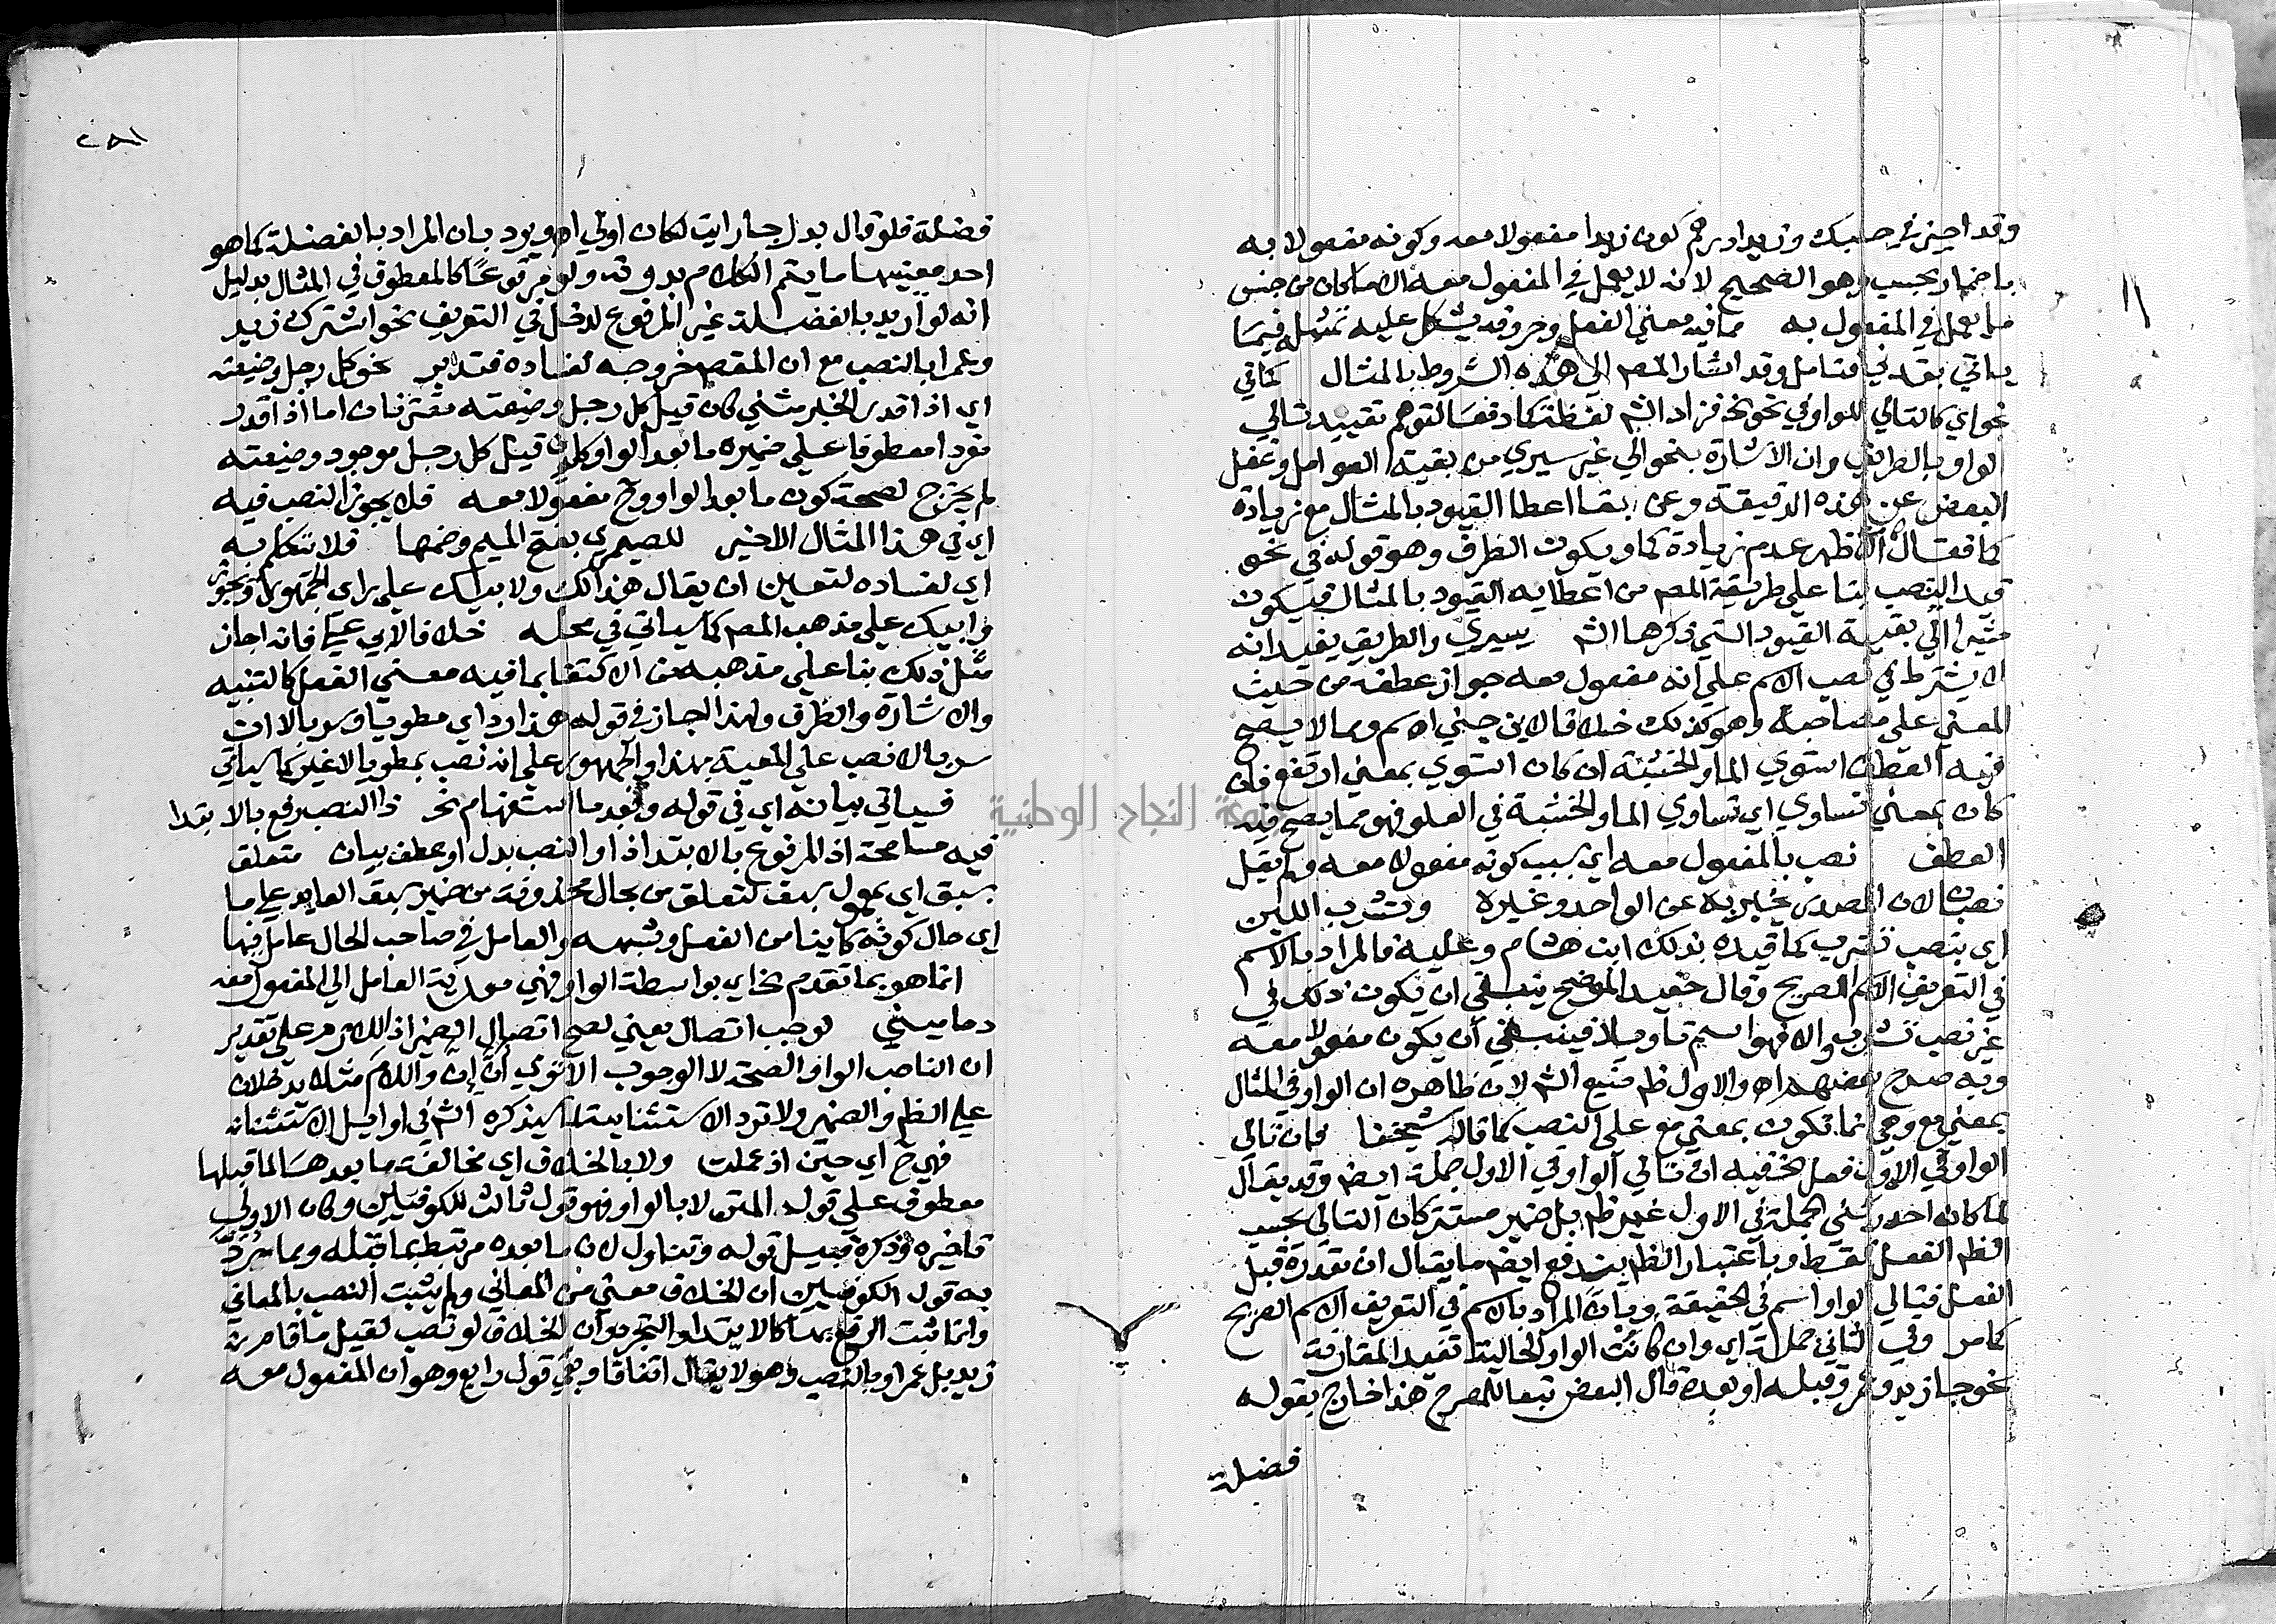 وقد اجيز في حسبك وزيدا درهم كون زيدا مفعولا معه وكونه مفعولا به
باضمار يحسب وهو الصحيح لانه لا يعمل في المفعول معه الا ما كان من جنس
ما يعمل في المفعول به مما فيه معني الفعل وحروفه يشكل عليه تمثيله فيما
ياتي بقدني فتامل وقد اشار المص الي هذه الشروط بالمثال كما في
نحو اي كالتالي للواو في نحو الخ فزاد الش لفظة كما دفعا لتوهم تقييد تالي
الواو بالطريق وان الاشارة بنحو الي غير سيري من بقية العوامل وغفل
البعض عن هذه الدقيقة وعن اعطا القيود بالمثال مع زيادة
كما فقال الاظهر عدم زيادة كما ويكون الظرف وهو قوله في نحو
قيد النصب بنا علي طريقة المص من اعطايه القيود بالمثال فيكون
مشيرا الي بقية القيود التي ذكرها الش يسيري والطريق يفيد انه
لا يشترط في نصب الاسم علي انه مفعول معه جواز عطفه من حيث
المعني علي مصاحبه وهو كذلك خلافا لابن جني اهـ سم ومما لا يصح
فيه العطف استوي الما والخشبة ان كان استوي بمعني ارتفع فان
كان بمعني تساوي اي تساوي الما والخشبة في العلو فهو مما يصح فيه
العطف نصب بالمفعول معه اي بسبب كونه مفعولا معه ولم يقل
نصبا لان المصدر يخبر به عن الواحد وغيره وتشرب اللبن
اي بنصب تشرب كما قيده بذلك ابن هشام وعليه فالمراد بالاسم
في التعريف الاسم الصريح وقال حفيد الموضح ينبغي ان يكون ذلك في
غير نصب تشرب والا فهو اسم تاويلا فينبغي ان يكون مفعولا معه
وبه صرح بعضهم اهـ والاول ظم صنيع الش لان ظاهره ان الواو في المثال
بمعني مع وهي انما تكون بمعني مع علي النصب كما قاله شيخنا فان تالي
الواو في الاول فعل الخ فيه ان تالي الواو في الاول جملة ايض وقد يقال
لما كان احد ركني الجملة في الاول غير ظم بل ضمير مستتر كان التالي بحسب
الظم الفعل فقط وباعتبار الظم يندفع ايض ما يقال ان مقدرة قبل
الفعل فتالي الواو اسم في الحقيقة وبان المراد بالاسم في التعريف الاسم الصريح
كما مر وفي الثاني جملة اي وان كانت الواو الحالية تفيد المقارنة
نحو جا زيد وعمرو قبله او بعده قال البعض تبعا للمصرح هذا خارج بقوله
فضلة
٢٨١
فضلة فلو قال بدل جا رايت لكان اولي اهـ ويرد بان المراد بالفضلة كما هو
احد معنييها ما يتم الكلام بدونه ولو مرفوعا كالمعطوف في المثال بدليل
انه لو اريد بالفضلة غير المرفوع لدخل في التعريف نحو اشترك زيد
وعمرا بالنصب مع ان المقص خروجه لفساده فتدبر نحو كل رجل وضيعته
اي اذا قدر الخبر مثني كان قيل كل رجل وضيعته مقترنان اما اذا قدر
مفردا معطوفا علي ضميره ما بعد الواو كان قيل كل رجل موجود وضيعته
لم يخرج لصحة كون ما بعد الواو ح مفعولا معه فلا يجوز النصب فيه
اي في هذا المثال الاخير للصيمري بفتح الميم وضمها فلا تتكلم به
اي لفساده لتعين ان يقال هذا لك ولابيك علي راي الجمهور ونحو
وابيك علي مذهب المص كما سياتي في محله خلافا لابي علي فانه اجاز
مثل ذلك بنا علي مذهبه من الاكتفا بما فيه معني الفعل كالتنبيه
والاشارة والظرف ولهذا اجاز في قوله هذا رداي مطويا وسربالا ان
سربالا نصب علي المعية بهذا والجمهور علي انه نصب بمطويا لا غير كما سياتي
فسياتي بيانه اي في قوله وبعد ما استفهام الخ ذا النصب رفع بالابتدا
فيه مسامحة اذ المرفوع بالابتدا ذا والنصب بدل او عطف بيان متعلق
بسبق اي بمعمول سبق لتعلق من بحال محذوفة من ضمير سبق العايد علي ما
اي حال كونه كاينا من الفعل وشبهه والعامل في صاحب الحال عامل فيها
انما هو بما تقدم الخ اي بواسطة الواو فهي معدية العامل الي المفعول معه
دماميني لوجب اتصال يعني لصح اتصال الضمير اذ اللازم علي تقدير
ان الناصب الواو الصحة لا الوجوب الا تري ان ان واللام مثلا يدخلان
علي الظم والضمير ولا ترد الا الاستثنايية لما سيذكره الش في اوايل الاستثنا
فهي ح اي حين اذ عملت ولا بالخلاف اي مخالفة ما بعدها لما قبلها
معطوف علي قول المتن لا بالواو فهو قول ثالث للكوفيين وكان الاولي
تاخيره وذكره قبيل قوله وتناول لان ما بعده مرتبط بما قبله ومما يرد
به قول الكوفيين ان الخلاف معني من المعاني ولم يثبت النصب بالمعاني
وانما ثبت الرفع بها كالابتدا والتجرد وان الخلاف لو نصب لقيل ما قام
زيد بل عمرا بالنصب وهو لا يقال اتفاقا وبقي قول رابع وهو ان المفعول معه
جامعة النجاح الوطنية